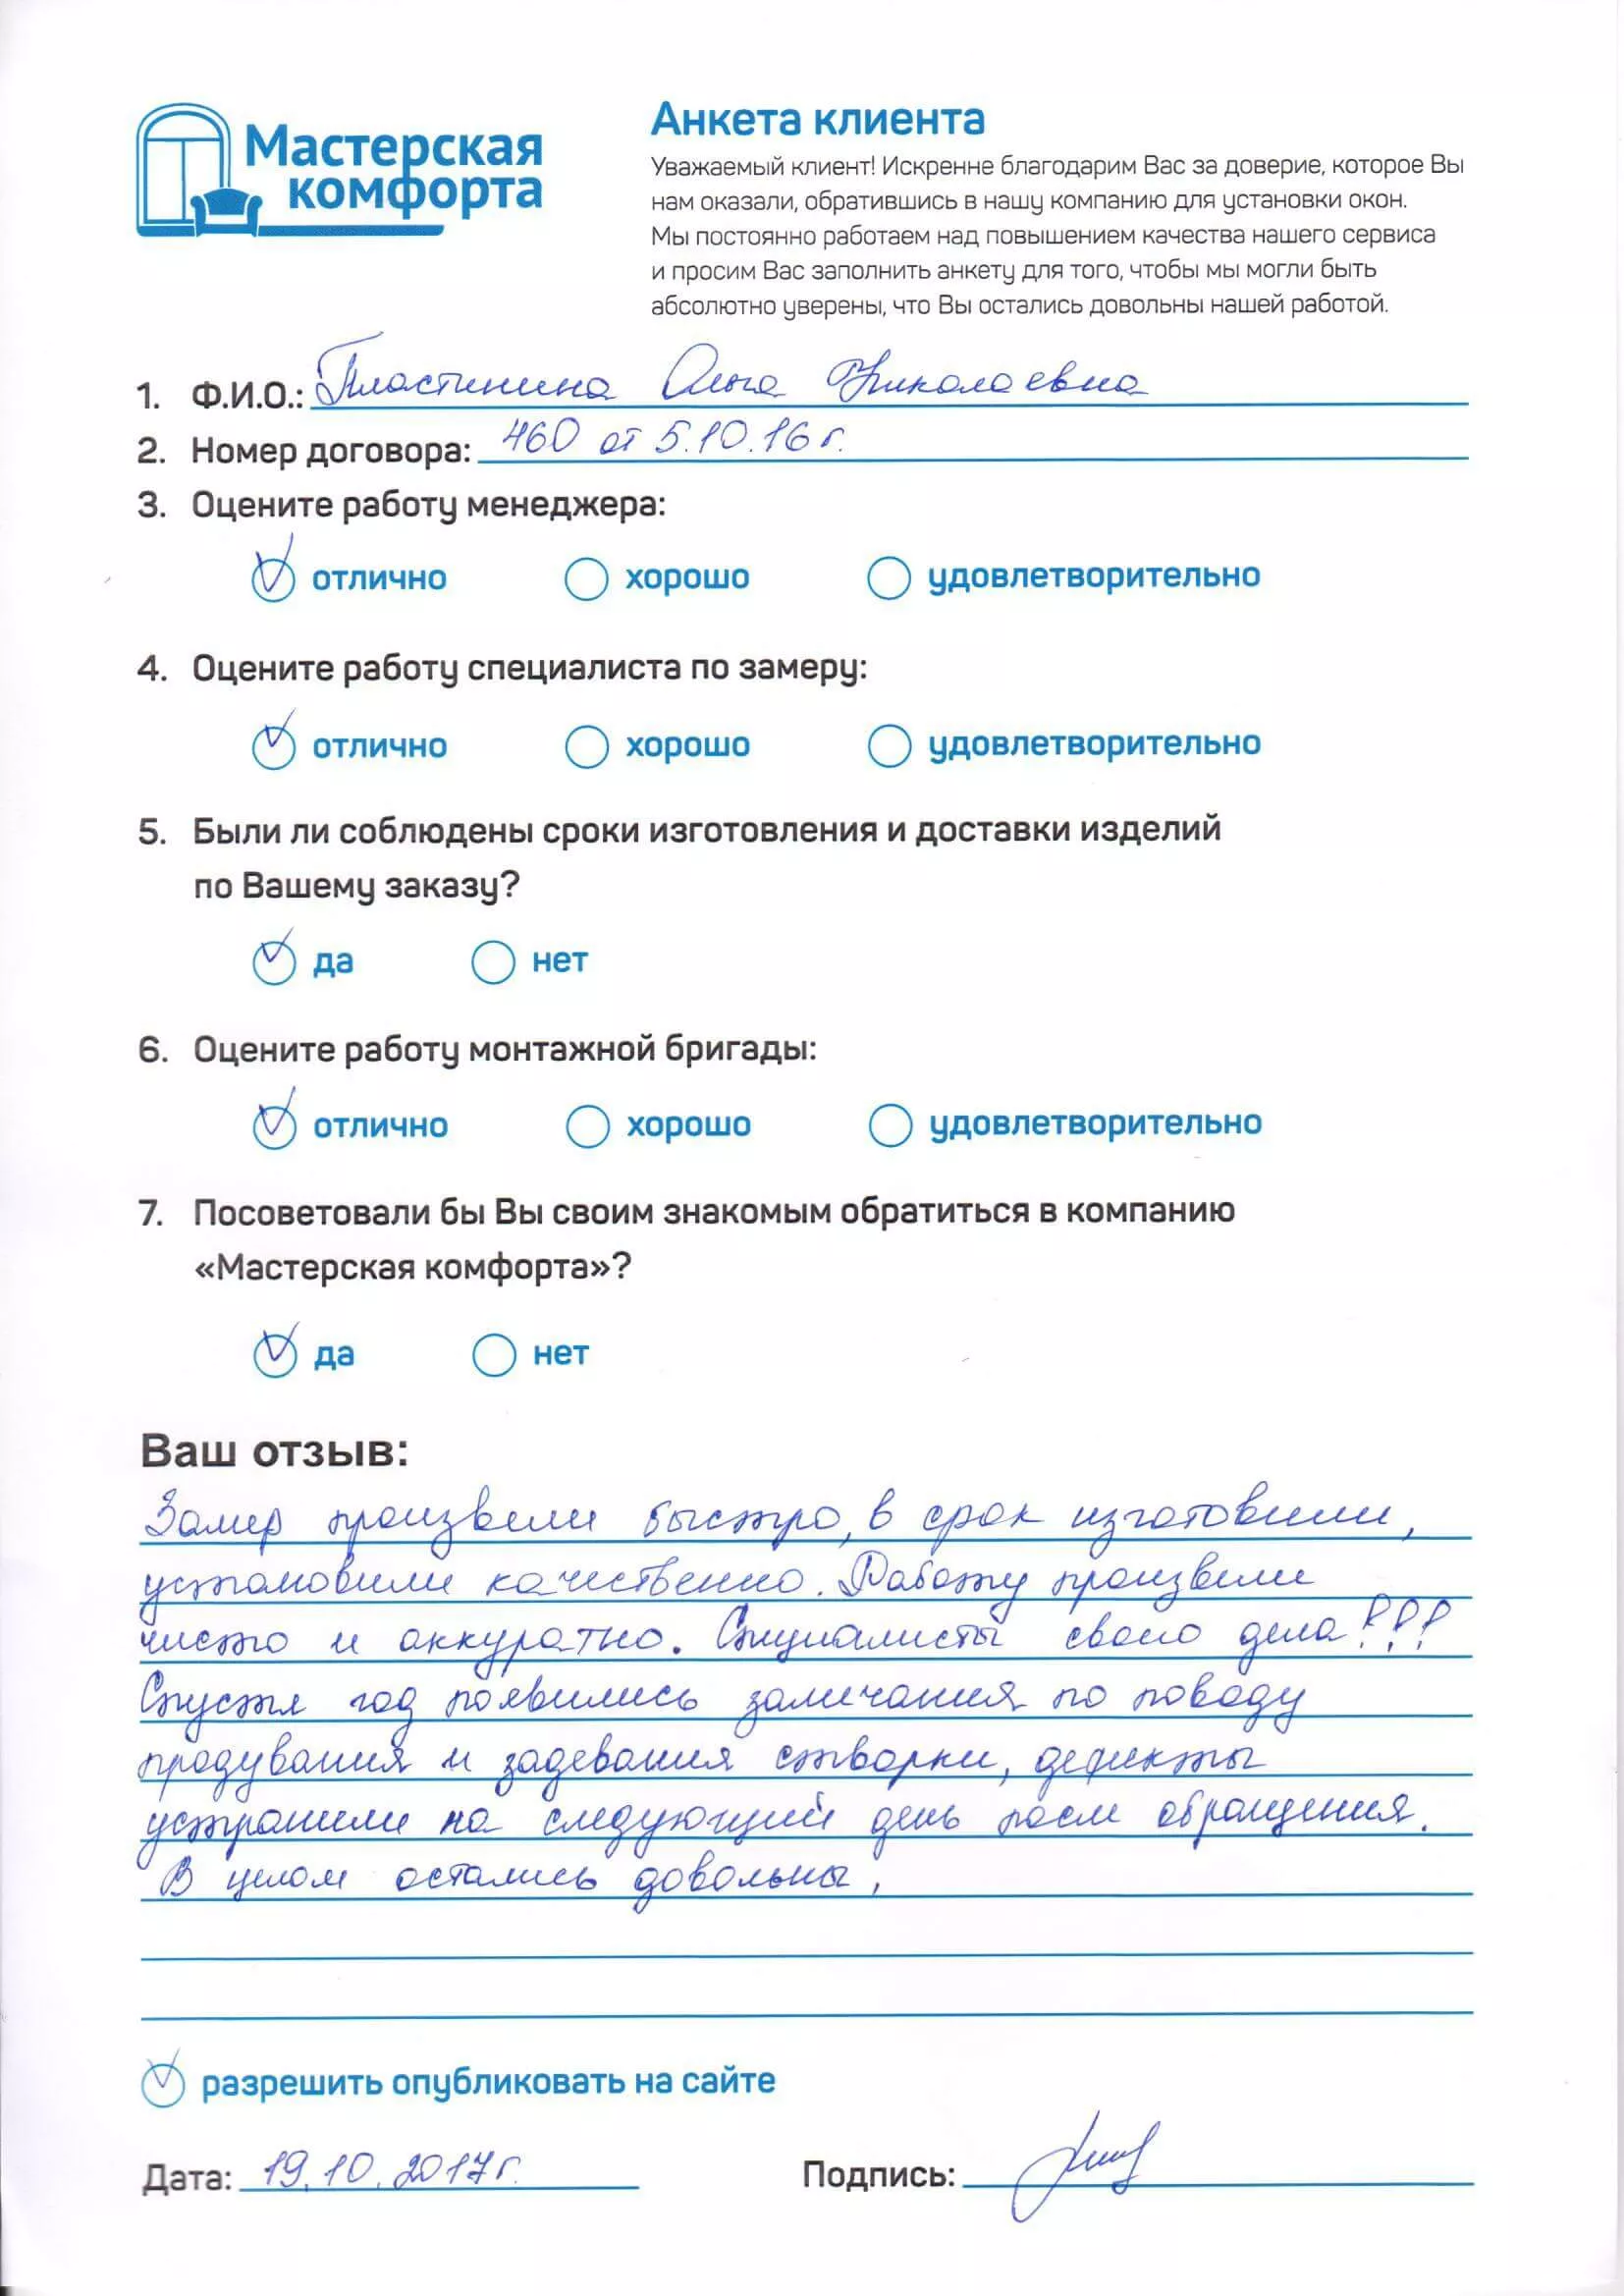 Мастерская
комфорта
Анкета клиента
Уважаемый клиент! Искренне благодарим Вас за доверие, которое Вы
нам оказали, обратившись в нашу компанию для установки окон.
Мы постоянно работаем над повышением качества нашего сервиса
и просим Вас заполнить анкету для того, чтобы мы могли быть
абсолютно уверены, что Вы остались довольны нашей работой.
1. Ф.И.О.: Пластинина Ольга Николаевна
2. Номер договора: 460 от 5.10.16 г.
3. Оцените работу менеджера:
отлично хорошо удовлетворительно
4. Оцените работу специалиста по замеру:
отлично хорошо удовлетворительно
5. Были ли соблюдены сроки изготовления и доставки изделий
по Вашему заказу?
да нет
6. Оцените работу монтажной бригады:
отлично хорошо удовлетворительно
7. Посоветовали бы Вы своим знакомым обратиться в компанию
«Мастерская комфорта»?
да нет
Ваш отзыв:
Замер произвели быстро, в срок изготовили,
установили качественно. Работу произвели
чисто и аккуратно. Специалисты своего дела!!!
Спустя год появились замечания по поводу
продувания и задевания створки, дефекты
устранили на следующий день после обращения.
В целом остались довольны.
разрешить опубликовать на сайте
Дата: 19.10.2017 г. Подпись: